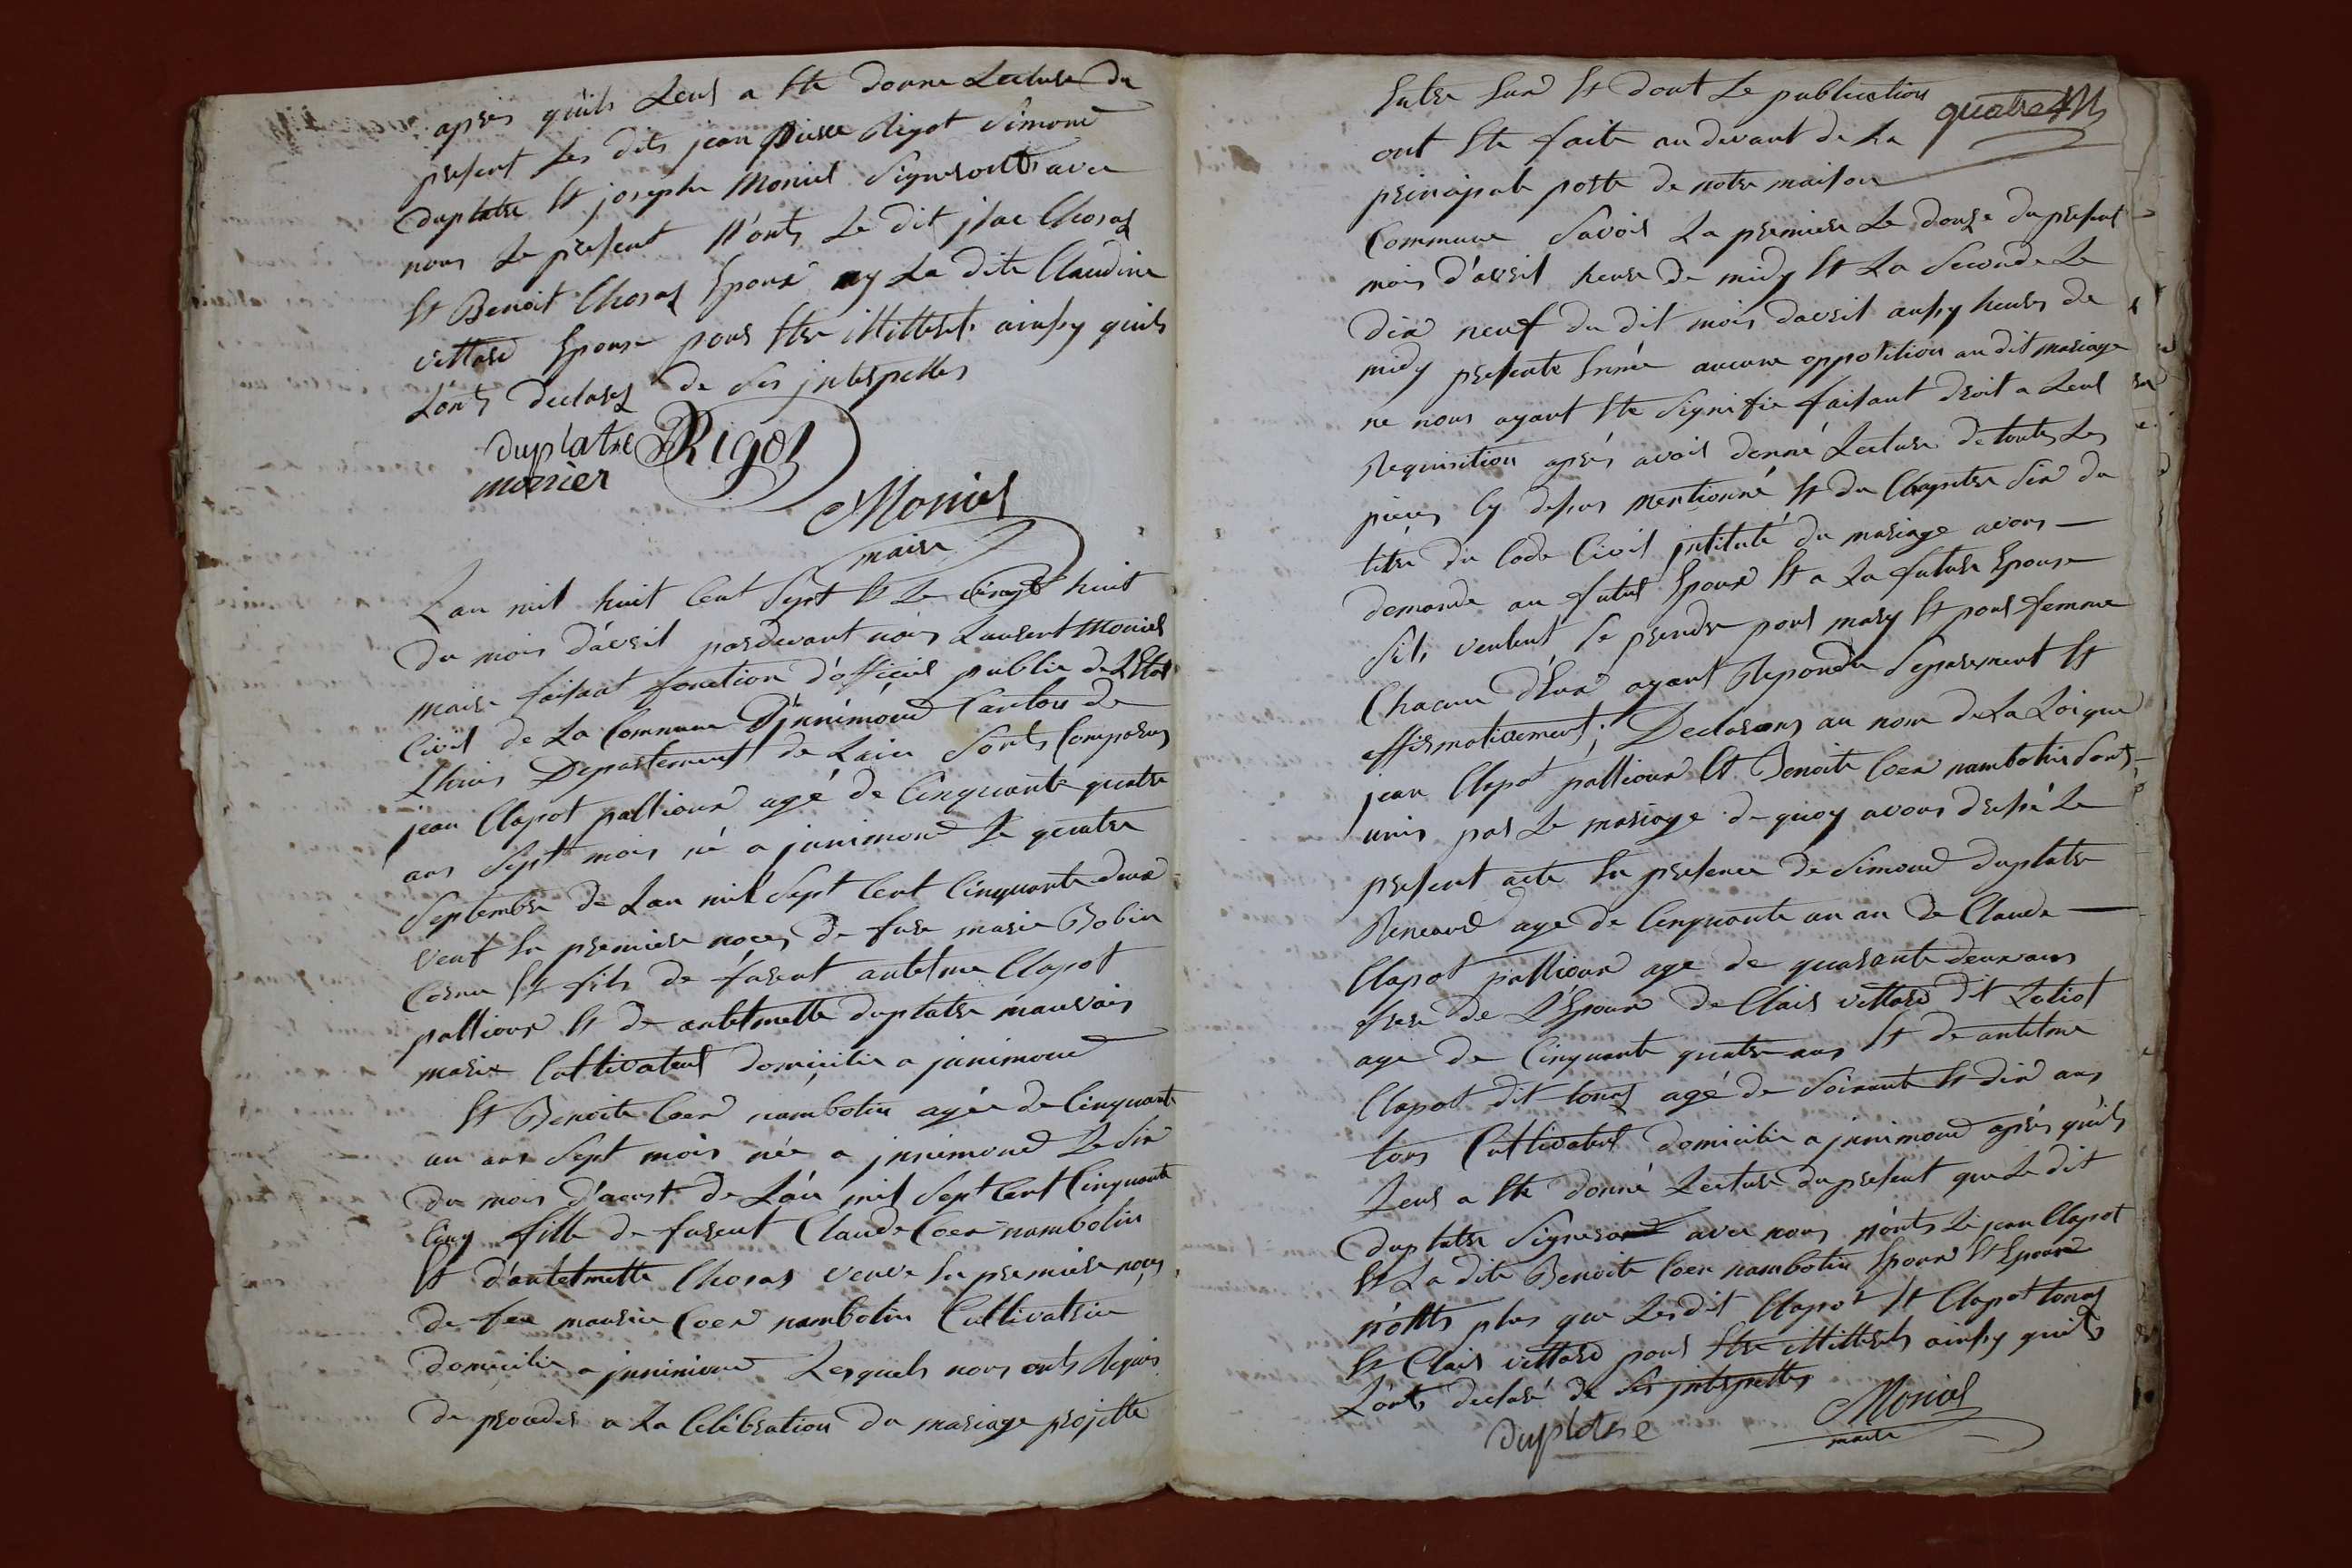 après quils Leur a Ete donne Lecture du
present Les dits jean pierre Rigot Simond
duplatre Et joseph Monier Signeronts avec
nous Le present N'onts Le dit jsac Choraz
Et Benoit Choraz Epoux ny La dite Claudine
vettard Epouse pour Etre illitterés ainsy quils
L'onts declarez de Ses jnterpelles
duplatre Rigoz
monier
Monier
maire
L'an mil huit Cent Sept Et Le vingt huit
du mois d'avril pardevant nous Laurent Monier
maire faisant fonction d'officier public de L'Etat
Civil de La Commune D'jnnimond Canton de
Lhuis Departement de Lain Sonts Comparus
jean Clapot pallioux agé de Cinquante quatre
ans Sept mois né a jnnimond Le quatre
Septembre de Lan mil Sept Cent Cinquante deux
veuf En premiere noces de fue marie Bobin
Cornu Et fils de furent antelme Clapot
pallioux Et de antelmette duplatre mauvais
marix Cultivateur domicilie a jnnimond
Et Benoite Coer nambotin agée de Cinquante
un ans Sept mois née a jnnimond Le Six
du mois d'aoust de L'an mil Sept Cent Cinquante
Cinq fille de furent Claude Coer nambotin
Et d'antelmette Choraz veuve En premiere noces
de feu maurice Coer nambotin Cultivatrice
domicilie a jnnimond Lesquels nous onts Requis
de proceder a La Célébration du mariage projetté
Entre Eux Et dont Le publication quatre
ont Ete faite au devant de La
principale porte de notre maison
Commune Savoir La premiere Le douze du present
mois d'avril heure de midy Et La Seconde Le
dix neuf du dit mois davril aussy heures de
midy presente Année aucune opposition au dit mariage
ne nous ayant Ete Signifie faisant droit a Leur
Requisition après avoir donné Lecture de toutes Les
pieces Cy dessus mentionné Et du Chapitre Six du
titre du Code Civil jntitulé du mariage avons
demande au futur Epoux Et a La future Epouse
Sils veulent Se prendre pour mary Et pour femme
Chacun d'Eux ayant Repondu Separement Et
affirmativement; Declarons au nom de La Loi que
jean Clapot pallioux Et Benoite Coer nambotin Sont
unis par Le mariage de quoy avons dressé Le
present acte En presence de Simond duplatre
Renaud age de Cinquante un an de Claude
Clapot pallioux age de quarante deux ans
frere de L'Epoux de Clair vettard dit Loliot
age de Cinquante quatre ans Et de antelme
Clapot dit tonaz agé de Soixante Et dix ans
tous Cultivateur domicilie a jnnimond après quils
Leur a Ete donné Lecture du present que Le dit
duplatre Signera avec nous n'onts Le jean Clapot
Et La dite Benoite Coer nambotin Epoux Et Epouse
n'onts plus que Lesdit Clapot Et Clapot tonaz
Et Clair vettard pour Etre illitterés ainsy quils
L'onts declaré de Ses jnterpelles
duplatre Monier
maire